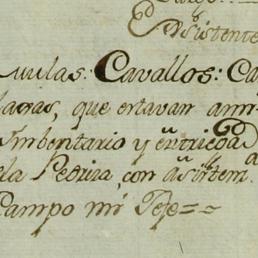 Asistente
Mulas: Cavallos: Ca
que estavan
Imbentario y entrega
la Pedriza, con asistem.a
Campo mi Tefe=